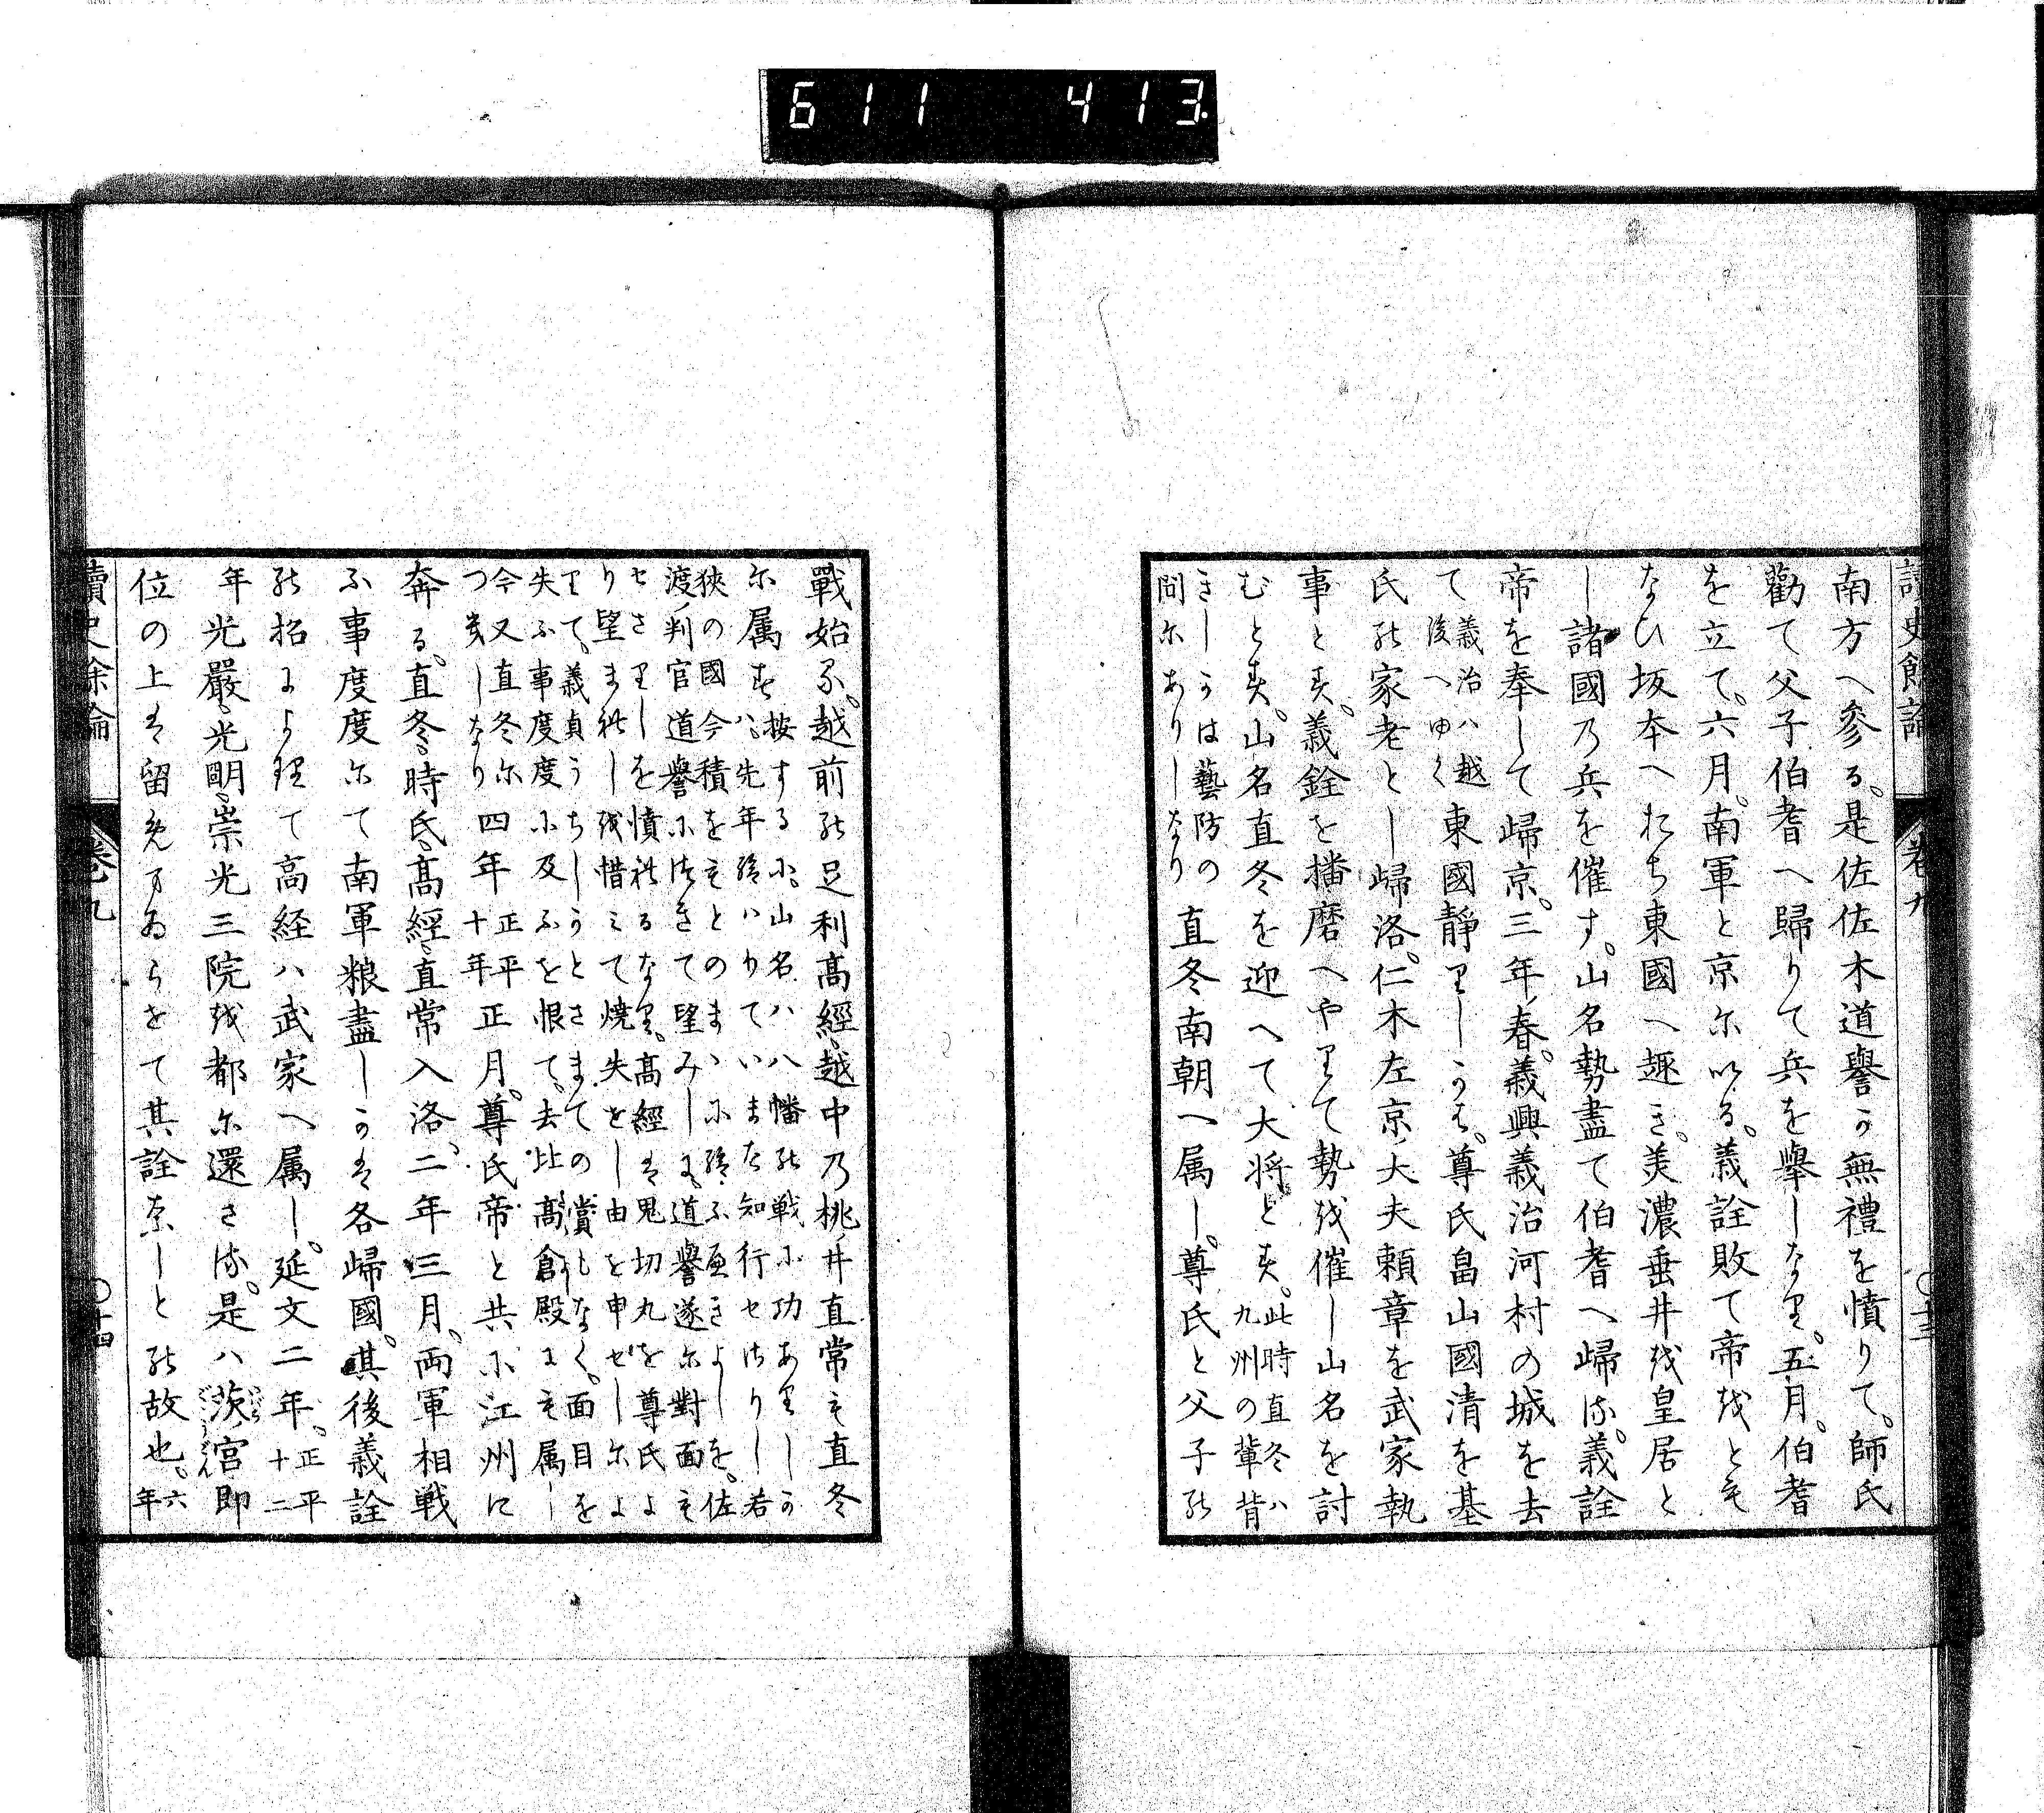 611 413
讀史餘論 卷九 〇十三
南方へ參る。是佐佐木道譽可無禮を憤りて。師氏
勸て父子伯耆へ歸りて兵を擧しなり。五月。伯耆
を立て。六月。南軍と京尓以る。義詮敗て帝越とも
なひ坂本へおち東國へ趣き。美濃垂井越皇居と
し諸國乃兵を催す。山名勢盡て伯耆へ歸る。義詮
帝を奉して歸京。三年春。義興義治河村の城を去
て
義治ハ越
後へゆく
東國靜りしかは。尊氏畠山國清を基
氏能家老とし歸洛。仁木左京大夫頼章を武家執
事とす。義銓を播磨へやりて勢越催し山名を討
むとす。山名直冬を迎へて大将とす。
此時直冬ハ
九州の輩背
きしかは藝防の
間尓ありしなり
直冬南朝へ属し。尊氏と父子能
戰始る。越前能足利高經。越中乃桃井直常も直冬
尓属すと
按するに。山名ハ八幡能戦に功ありしか
ハ。先年給ハりていまた知行せさりし若
狹の國今積をもとのまゝに給ふへきよしを。佐
渡判官道譽に付きて望みしに。道譽遂尓對面も
せさりしを憤れるなり。高經は鬼切丸を尊氏よ
り望まれし越惜みて焼失せし由を申せしによ
りて。義貞うちしかとさまての賞もなく。面目を
失ふ事度度に及ふを恨て。去比高倉殿にも属し
今又直冬尓
つきしなり
四年
正平
十年
正月。尊氏帝と共に江州に
奔る。直冬。時氏。高經。直常入洛。二年三月。両軍相戦
ふ事度度尓て南軍粮盡しかは各歸國。其後義詮
能招によりて高経ハ武家へ属し。延文二年。
正平
十二
年
光嚴。光明。崇光三院越都尓還さる。是ハ茨宮即
位の上は留め万ゐらせて其詮なしと能故也。
六
年
讀史餘論 卷九 〇十四